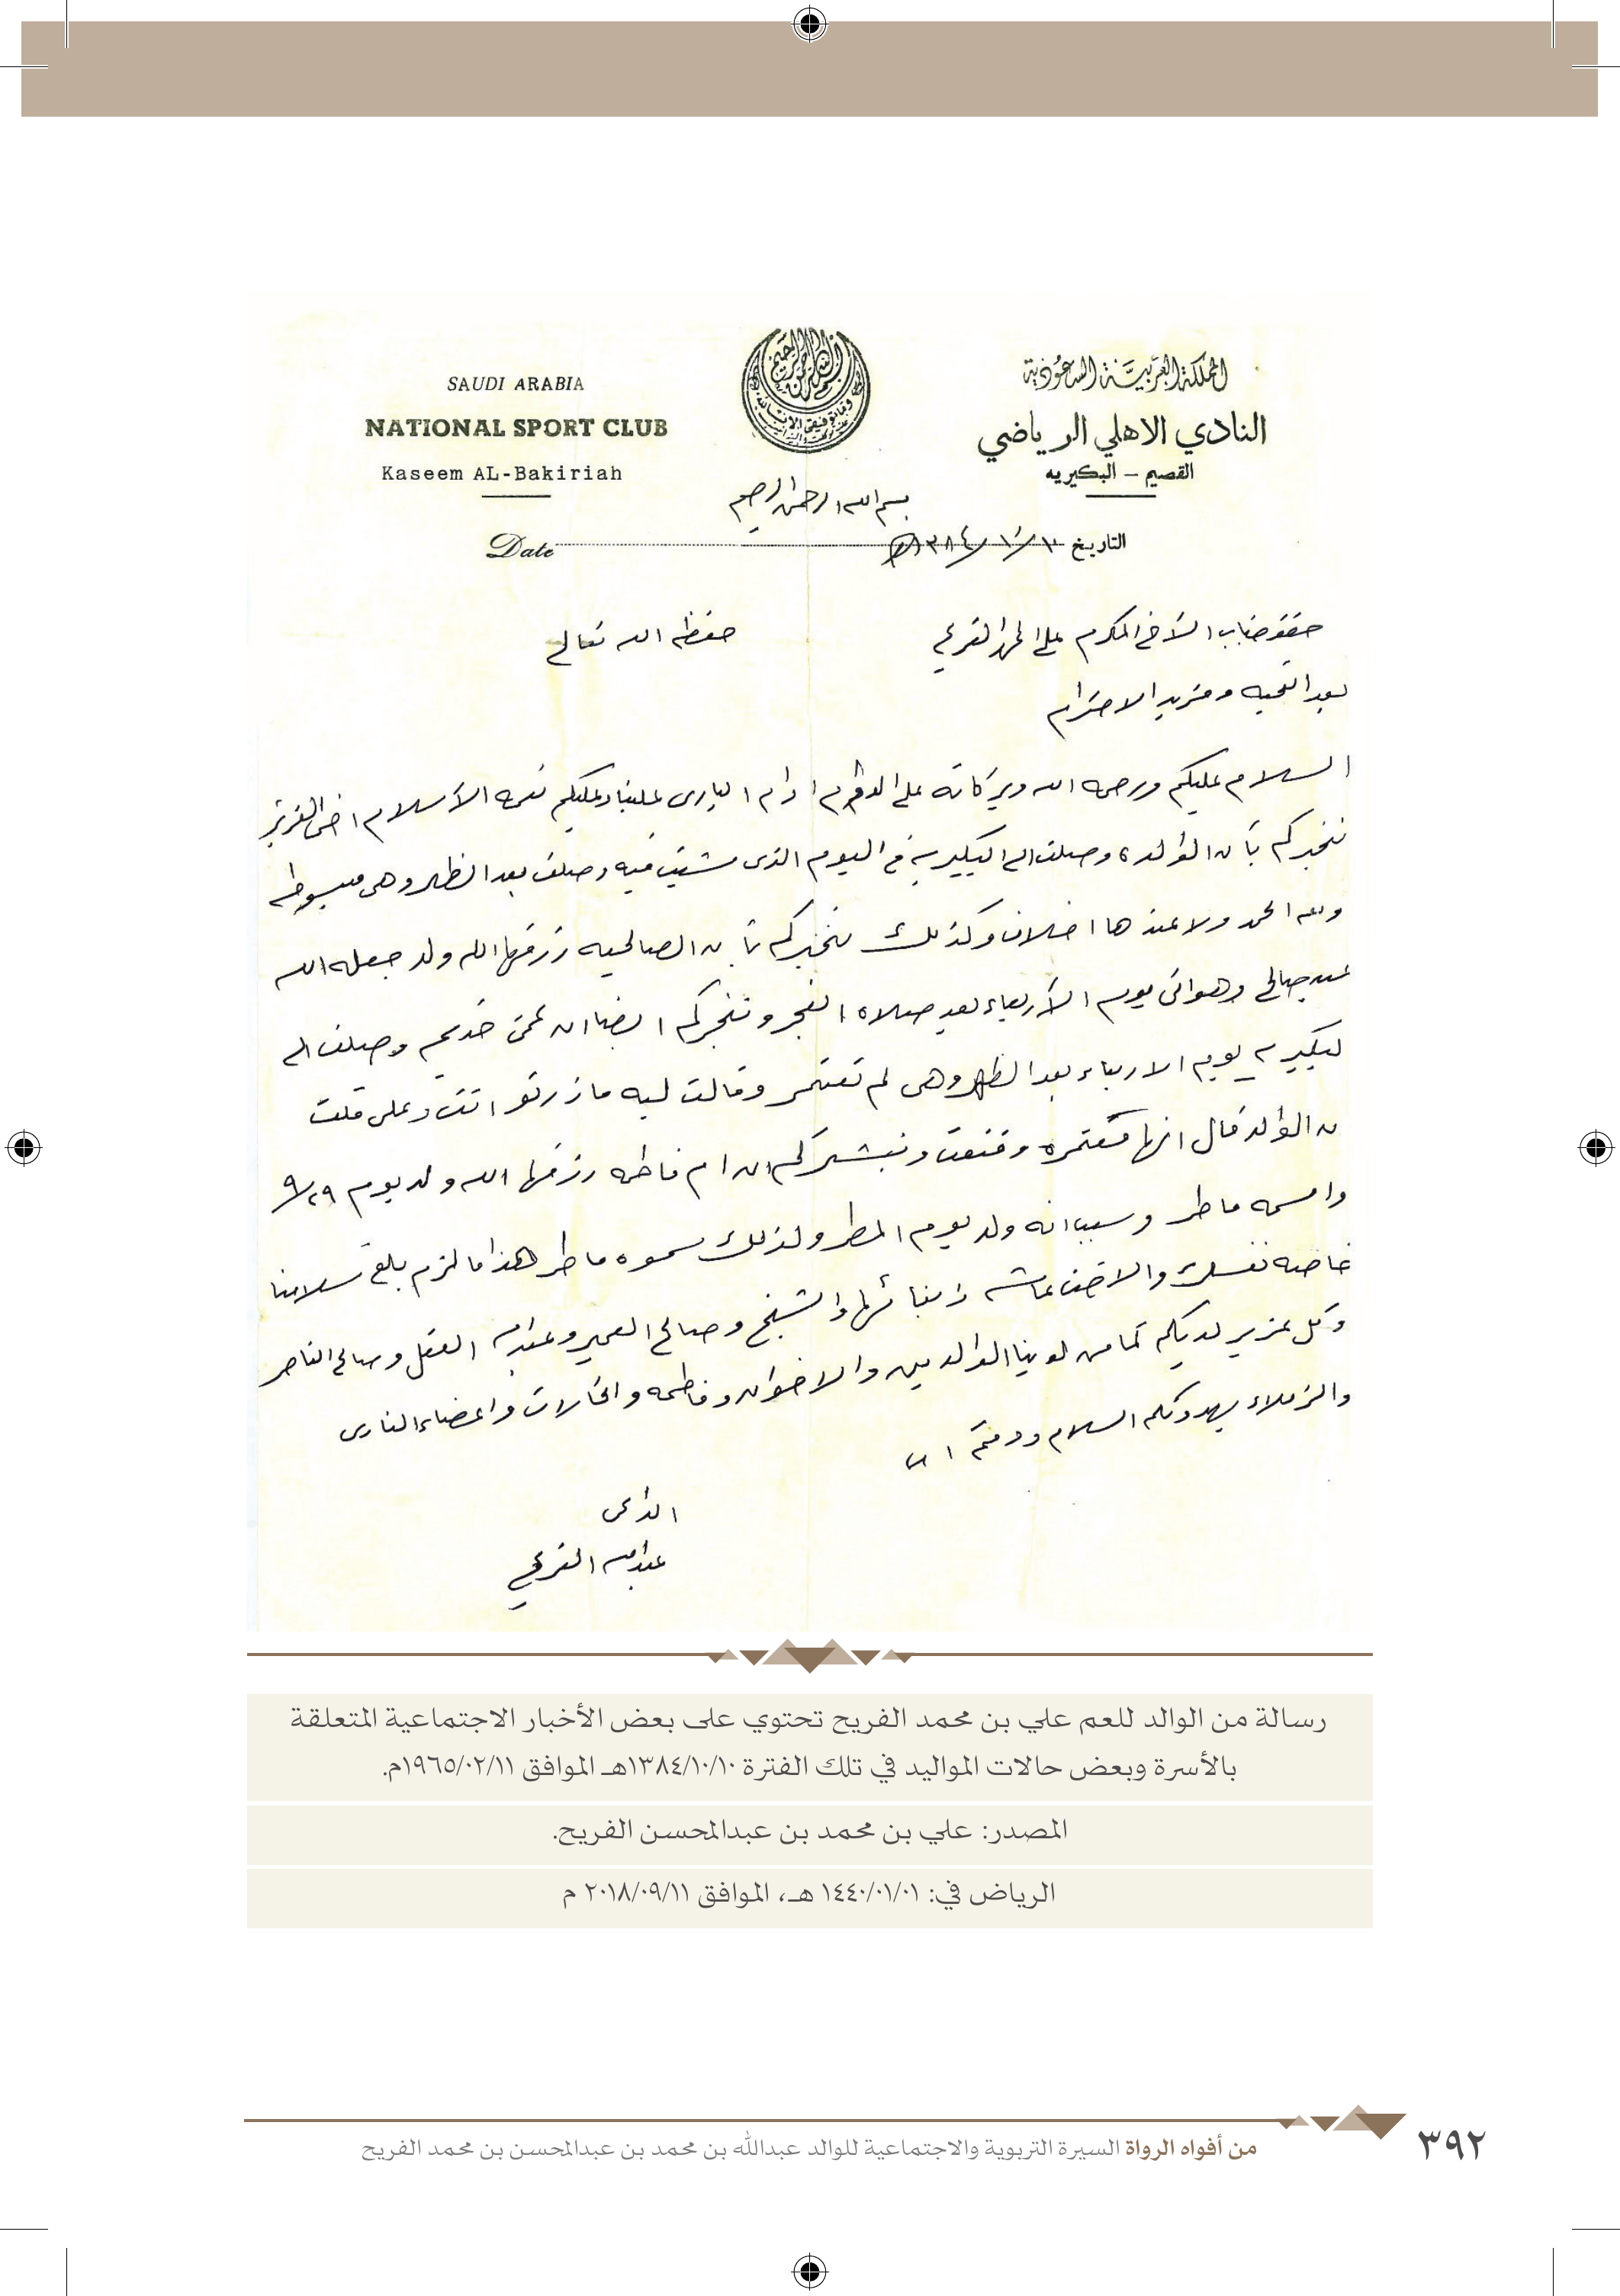 المملكة العربية السعودية
النادي الاهلي الرياضي
القصيم - البكيريه
SAUDI ARABIA
NATIONAL SPORT CLUB
Kaseem AL-Bakiriah
بسم الله الرحمن الرحيم
التاريخ ١٠/١٠/١٣٨٤هـ Date
حضرة جناب الأخ المكرم علي المحمد الفريح حفظه الله تعالى
بعد التحيه ومزيد الاحترام
السلام عليكم ورحمه الله وبركاته على الدوام ادام البارى علينا وعليكم نعمه الأسلام اخى العزيز
نخبركم بأن الوالده وصلت الى البكيريه في اليوم الذى مشيت فيه وصلت بعد الظهر وهى مبسوطه
ولله الحمد ولا عندها اخلاف وكذلك نخبركم بأن الصالحيه رزقها الله ولد جعله الله
عبد صالح وهو اتى يوم الأربعاء بعد صلاه الفجر ونخبركم ايضا ان عمتى خديجه وصلت الى
لبكيريه يوم الاربعاء بعد الظهر وهى لم تعتمر وقالت ليه ما زرتو انت وعلى قلت
ن الوالد قال انها معتمره وقنعت ونبشركم ان ام فاطمه رزقها الله ولد يوم ٩/٢٩
واسمه ماطر وسبب انه ولد يوم المطر ولذلك سموه ماطر هذا ما لزم بلغ سلامنا
خاصه نفسك والاخت عائشه وابنائها والشيخ وصالح العمير وعبدالله العقل وصالح الناصر
وكل عزيز لديكم كما من لدينا الوالدين والاخوان وفاطمه والخالات واعضاء النادى
والزملاء يهدونكم السلام ودمتم
الداعى
عبدالله الفريح
رسالة من الوالد للعم علي بن محمد الفريح تحتوي على بعض الأخبار الاجتماعية المتعلقة
بالأسرة وبعض حالات المواليد في تلك الفترة ١٣٨٤/١٠/١٠هـ الموافق ١٩٦٥/٠٢/١١م.
المصدر: علي بن محمد بن عبدالمحسن الفريح.
الرياض في: ١٤٤٠/٠١/٠١ هـ، الموافق ٢٠١٨/٠٩/١١ م
من أفواه الرواة السيرة التربوية والاجتماعية للوالد عبدالله بن محمد بن عبدالمحسن بن محمد الفريح
٣٩٢